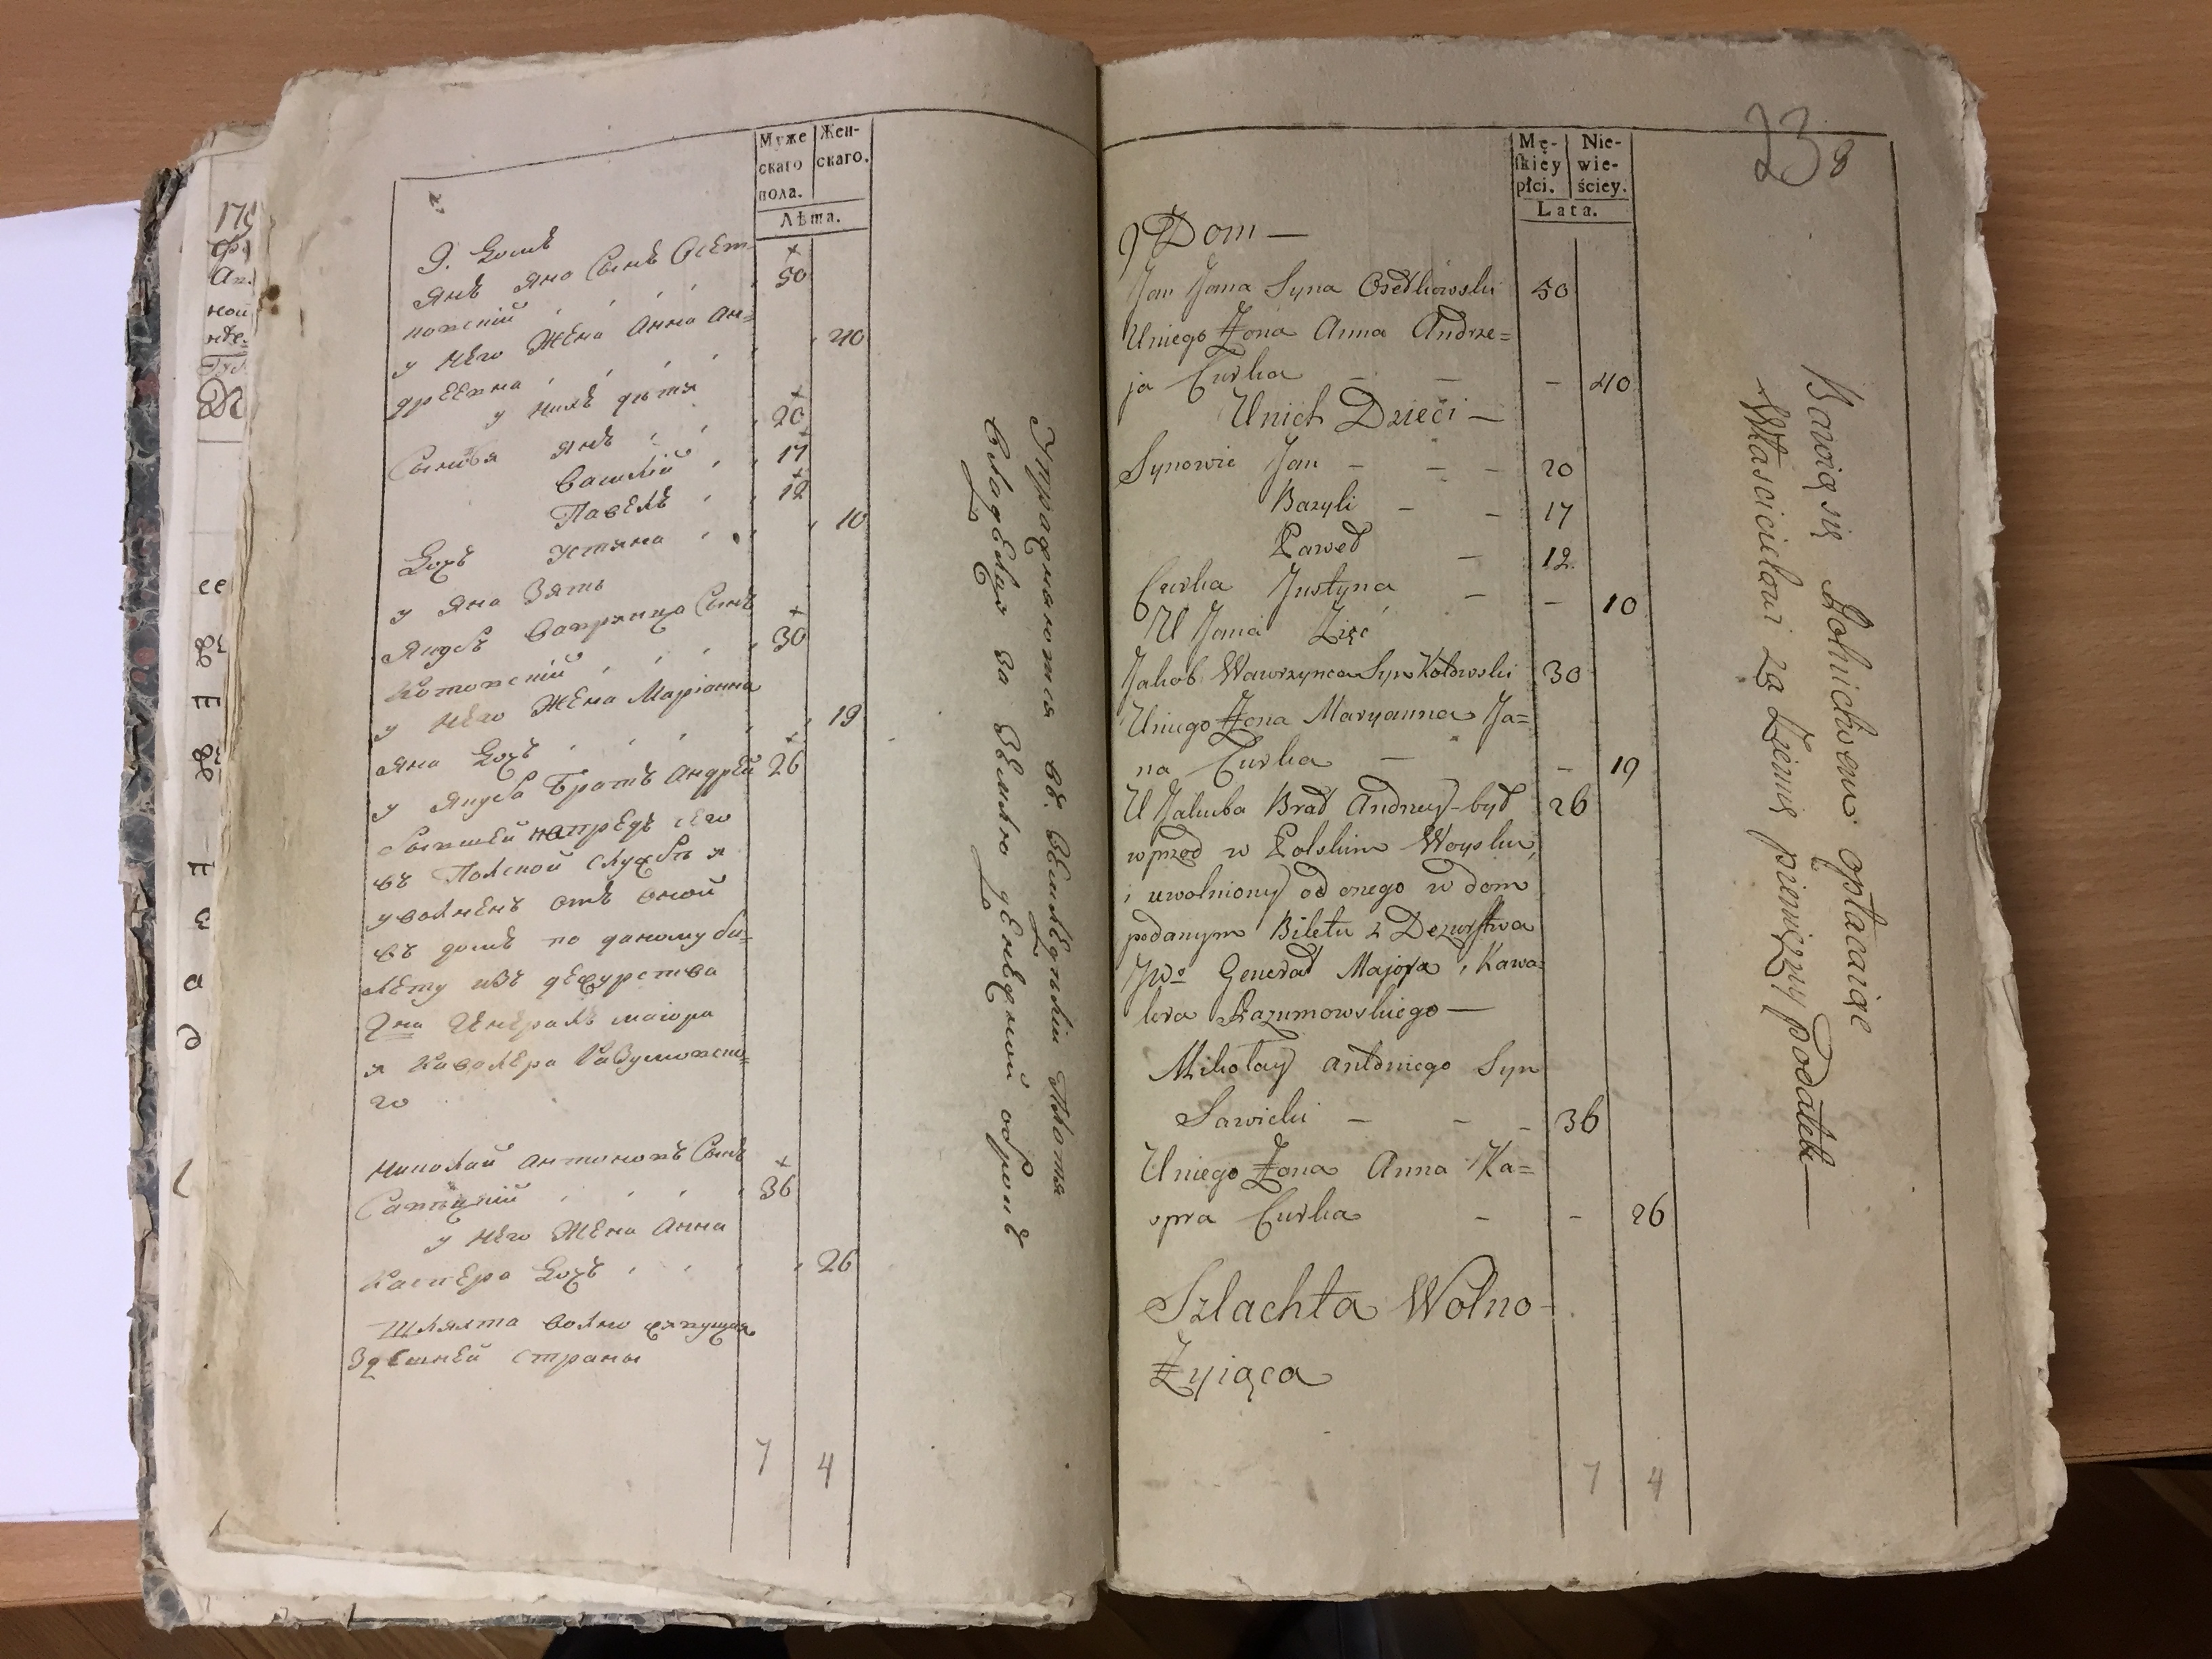 Муже
скаго
пола.
Жен-
скаго.
Лѣта.
9. Домъ
Янъ Яна Сынъ Осет-
ковскій 50
у него Жена Анна Ан=
дреевна 40
у нихъ дѣти
Сыновья Янъ 20
Василій 17
Павелъ 12
Дочь Устина 10
у Яна Зять
Якубъ Вавринца Сынъ
Котовскій 30
у него Жена Маріанна
Яна Дочь 19
у Якуба Братъ Андрей 26
бывшей напредь сего
въ Полской службѣ и
уволненъ отъ оной
въ домъ по даному би=
лету изъ дежурства
Гна Генералъ маіора
и Кавалера Разумовска=
го
Николай Антоновъ Сынъ
Савицкій 36
у него Жена Анна
Каспера Дочь 26
Шляхта волно живущая
Здешней страны
7 4
Упражняются въ земледѣліи платя
владелцу за землю денежной оброкъ
23 8
Mę-
skiéy
płci.
Nie-
wie-
ściey.
Lata.
9 Dom —
Jan Jana Syna Osetkowski 50
Uniego Żona Anna Andrze=
ja Curka - - - 40
Unich Dzieci —
Synowie Jan - - - 20
Bazyli - - 17
Paweł - 12
Curka Justyna - - 10
U Jana Zięć
Jakob Wawrzynca Syn Kotowski 30
Uniego Żona Maryanna Ja=
na Curka - - 19
U Jakuba Brat Andrzey - był 26
wprzod w Polskim Woysku,
i uwolniony od onego w dom
podanym Biletu z Dezurstwa
JWo Generał Majora i Kawa=
lera Razumowskiego —
Mikołay Antoniego Syn
Sawicki - - - 36
Uniego Żona Anna Ka=
spra Curka - - 26
Szlachta Wolno-
Żyiąca
7 4
Bawią się Rolnictwem opłacaiąc
Właścicielowi za Ziemię pieniężny podatek —